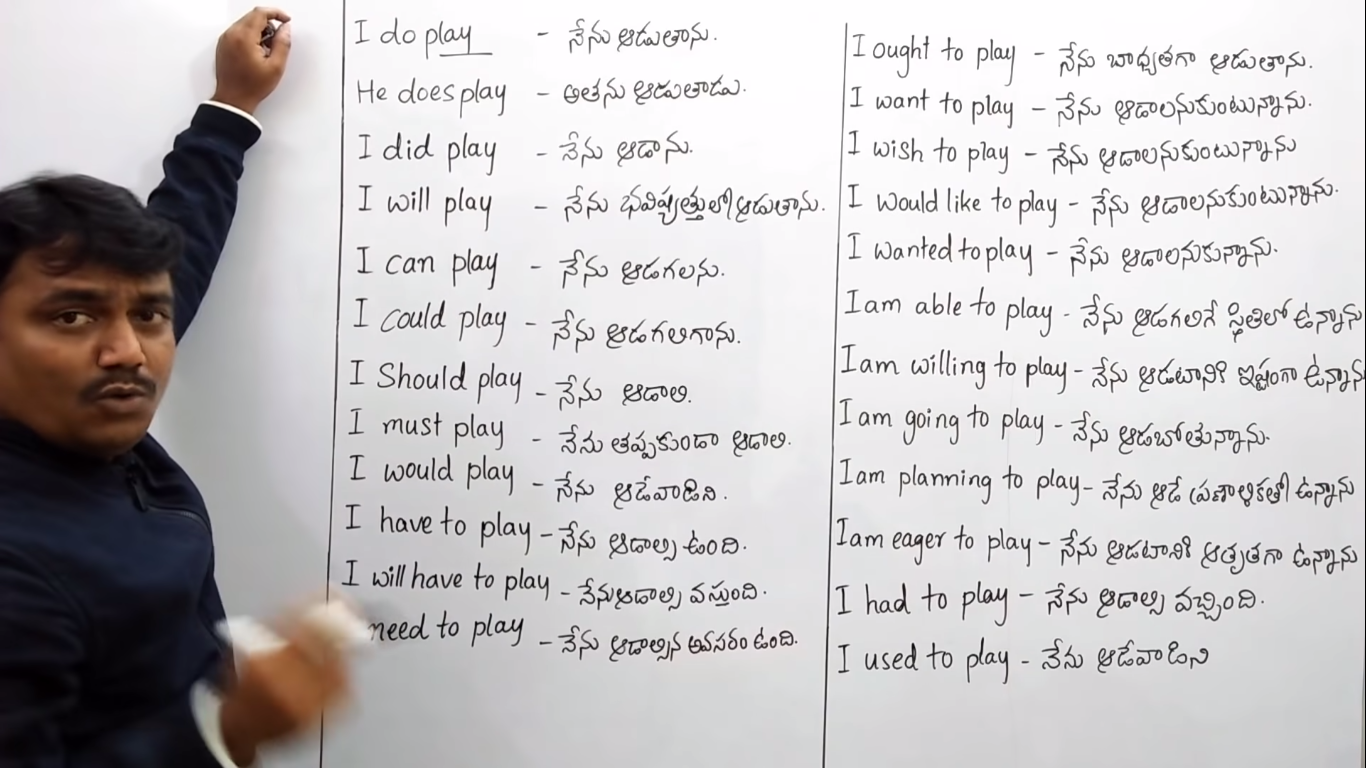 I do play - నేను ఆడుతాను.
He does play - అతను ఆడుతాడు.
I did play - నేను ఆడాను.
I will play - నేను భవిష్యత్తులో ఆడుతాను.
I can play - నేను ఆడగలను.
I could play - నేను ఆడగలిగాను.
I Should play - నేను ఆడాలి.
I must play - నేను తప్పకుండా ఆడాలి.
I would play - నేను ఆడేవాడిని.
I have to play - నేను ఆడాల్సి ఉంది.
I will have to play - నేను ఆడాల్సి వస్తుంది.
need to play - నేను ఆడాల్సిన అవసరం ఉంది.
I ought to play - నేను బాధ్యతగా ఆడుతాను.
I want to play - నేను ఆడాలనుకుంటున్నాను.
I wish to play - నేను ఆడాలనుకుంటున్నాను
I would like to play - నేను ఆడాలనుకుంటున్నాను.
I wanted to play - నేను ఆడాలనుకున్నాను.
I am able to play - నేను ఆడగలిగే స్థితిలో ఉన్నాను
I am willing to play - నేను ఆడటానికి ఇష్టంగా ఉన్నాను
I am going to play - నేను ఆడబోతున్నాను.
I am planning to play - నేను ఆడే ప్రణాళికతో ఉన్నాను
I am eager to play - నేను ఆడటానికి ఆతృతగా ఉన్నాను
I had to play - నేను ఆడాల్సి వచ్చింది.
I used to play - నేను ఆడేవాడిని